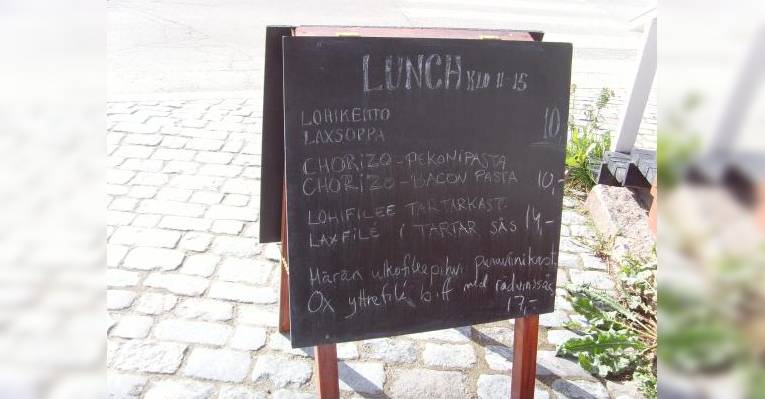 LUNCH KLO 11-15
LOHIKEITTO
LAXSOPPA 10
CHORIZO-PEKONIPASTA
CHORIZO-BACON PASTA 10,-
LOHIFILEE TARTARKAST.
LAXFILÉ I TARTAR SÅS 14,-
Härän ulkofileepihvi punaviinikast.
Ox yttrefilé biff med rödvinssås
17,-